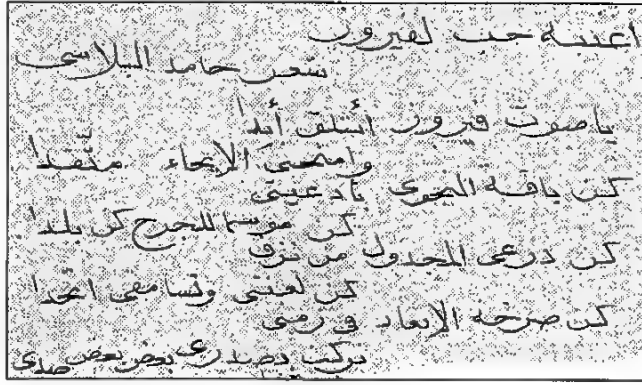 أغنية حب لفيروز
شعر حامد البلاسي
ياصوت فيروز أئتلق أبدا
وامنحني الإيحاء متّقدا
كن باقة النجوى بأدعيتي
كن موسما للجرح كن بلدا
كن درعي المجدول من نزف
كن لعنتي وتسامقي اتحدا
كن صرخة الإبعاد في زمني
تركت بصدري بعض بعض صدى